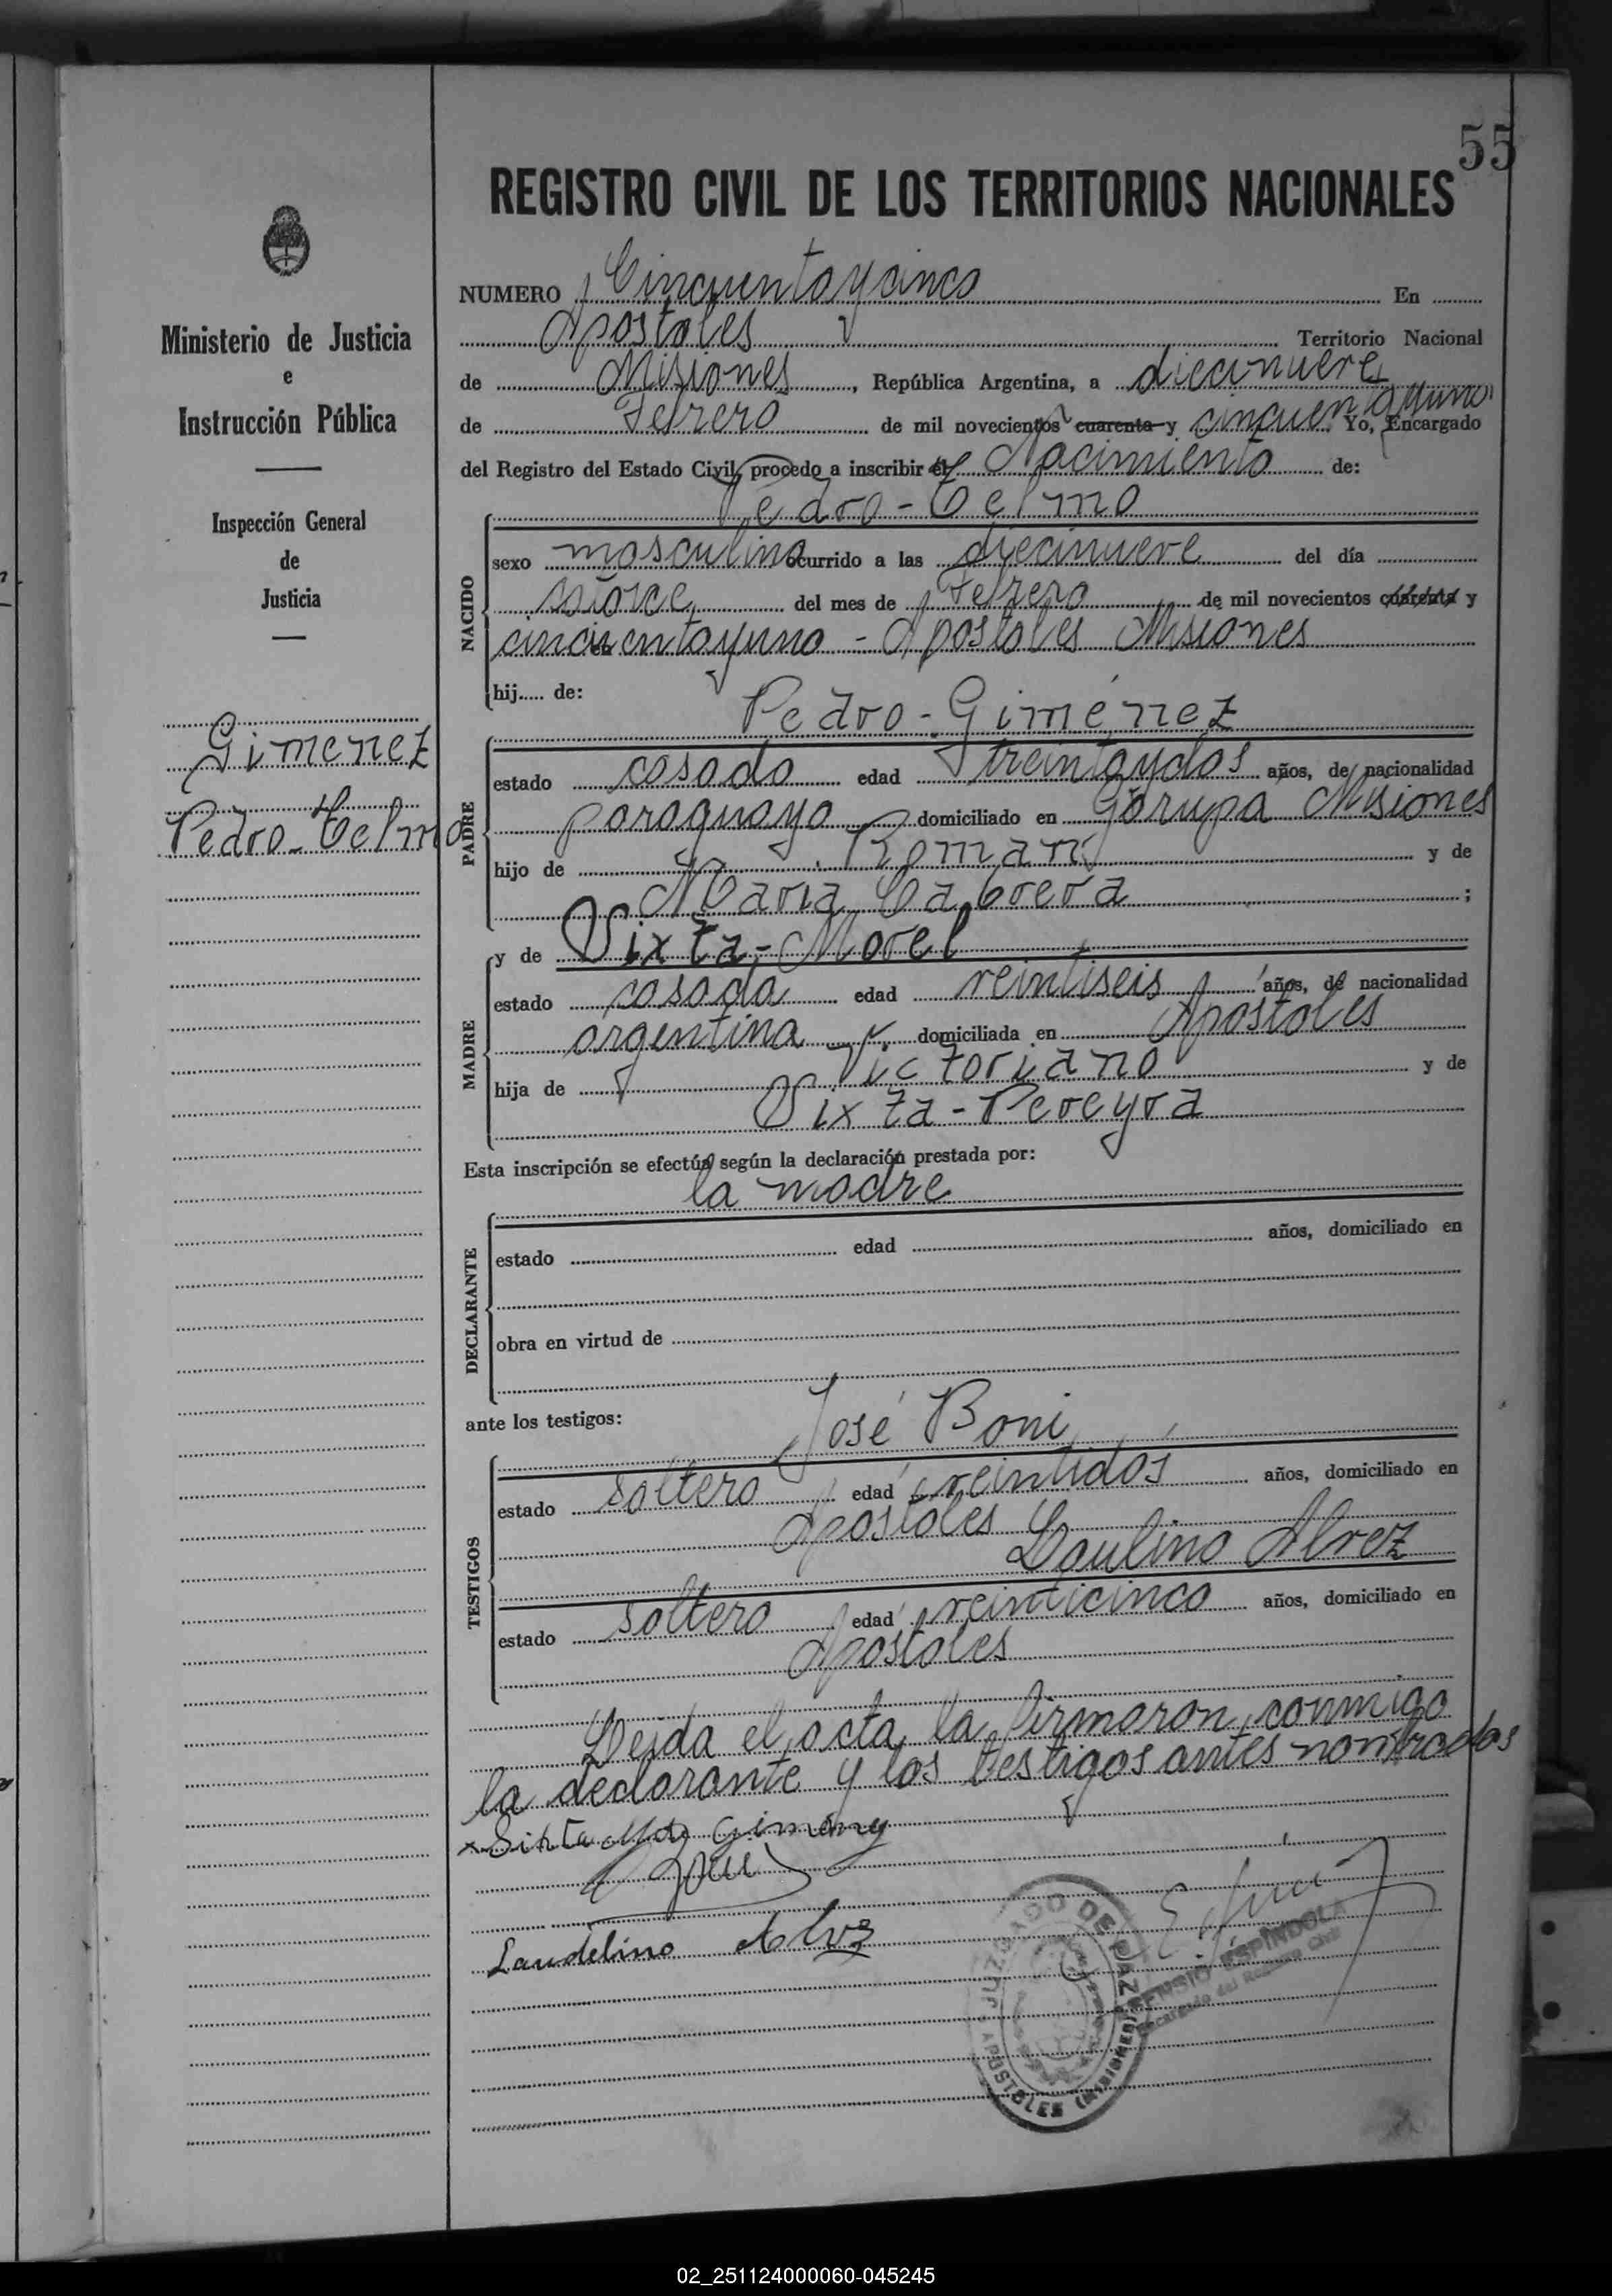 55
REGISTRO CIVIL DE LOS TERRITORIOS NACIONALES
NUMERO Cincuentaycinco En
Apostoles Territorio Nacional
de Misiones, República Argentina, a diecinueve
de Febrero de mil novecientos cuarenta y cincuentayuno Yo, Encargado
del Registro del Estado Civil, procedo a inscribir el Nacimiento de:
Pedro-Telmo
NACIDO
sexo masculino ocurrido a las diecinueve del día
catorce del mes de Febrero de mil novecientos cuarenta y
cincuentayuno - Apostoles Misiones
hij..... de:
Pedro-Giménez
PADRE
estado casado edad treintaydos años, de nacionalidad
paraguaya domiciliado en Garupa Misiones
hijo de Roman y de
Maria Cabrera ;
y de Sixta-Morel
MADRE
estado casada edad veintiseis años, de nacionalidad
argentina domiciliada en Apostoles
hija de Victoriano y de
Sixta-Pereyra
Esta inscripción se efectúa según la declaración prestada por:
la madre
DECLARANTE
estado edad años, domiciliado en
obra en virtud de
ante los testigos:
José Boni
TESTIGOS
estado soltero edad veintidós años, domiciliado en
Apostoles
Laulino Alvez
estado soltero edad veinticinco años, domiciliado en
Apostoles
Leida el acta, la firmaron, conmigo
la declarante y los testigos antes nombrados
Sixta Gimenez
Laudelino Alvez
JUZGADO DE PAZ
APOSTOLES (MISIONES)
ESPINDOLA
Encargado del Registro Civil
Ministerio de Justicia
e
Instrucción Pública
Inspección General
de
Justicia
Gimenez
Pedro-Telmo
02_251124000060-045245